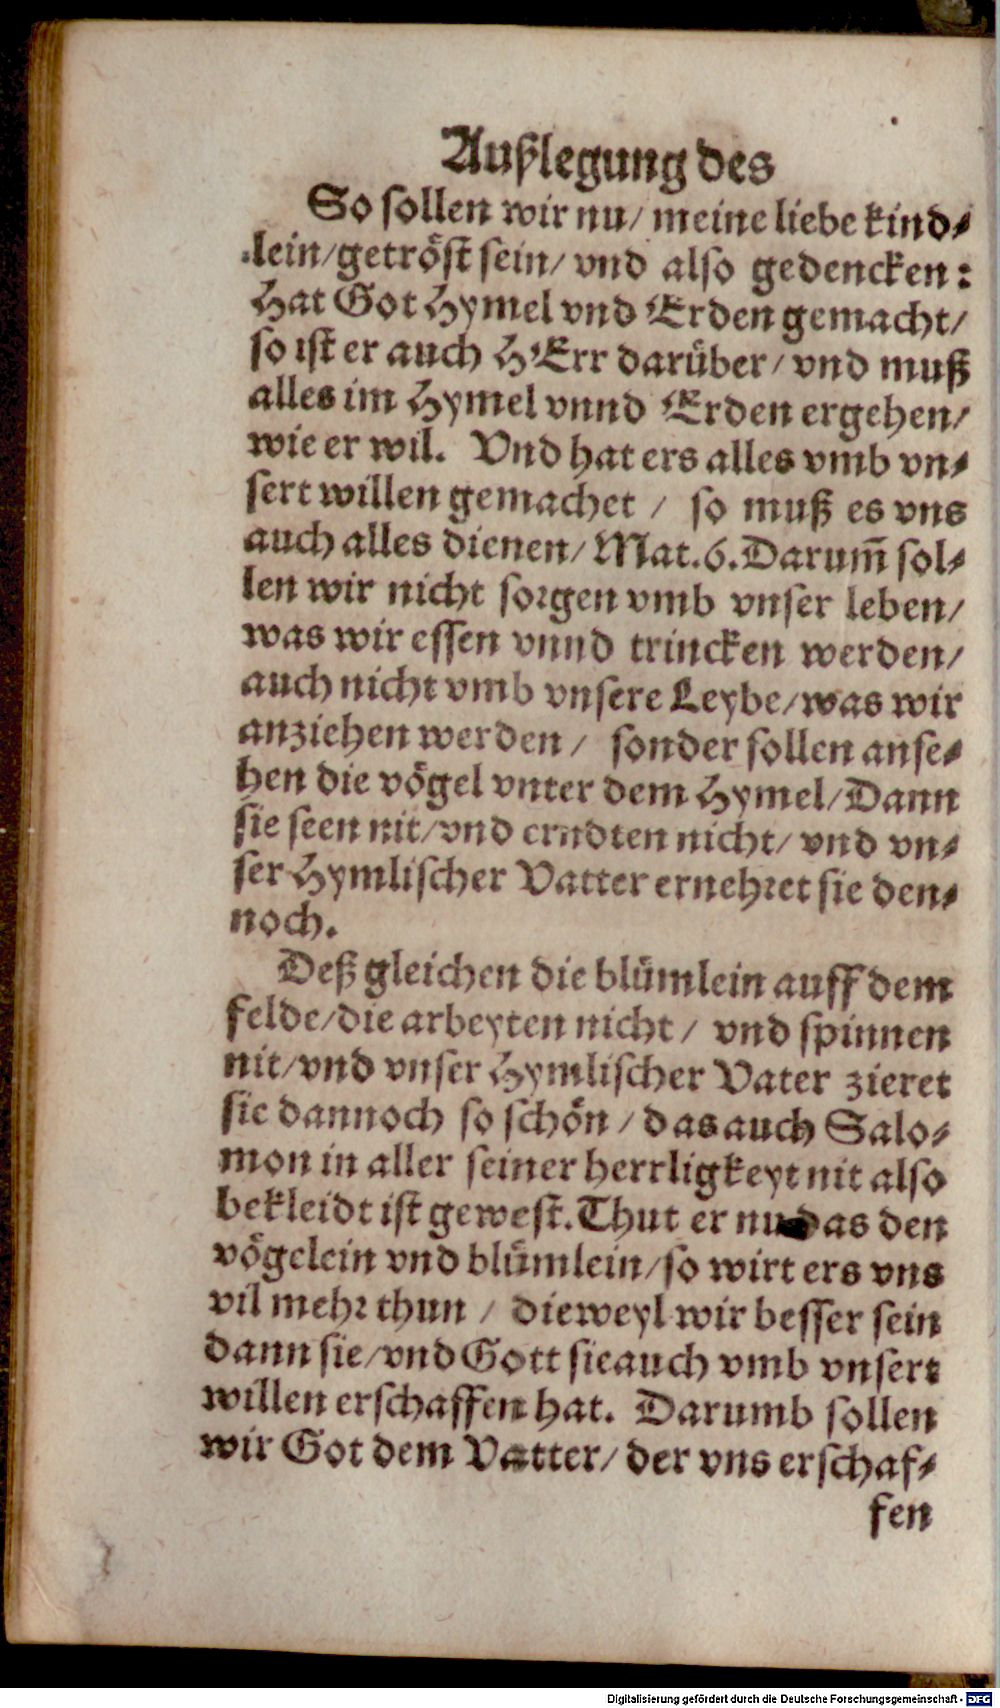 Außlegung des
So sollen wir nu/ meine liebe kind⸗
lein/getröst sein/ vnd also gedencken:
Hat Got Hymel vnd Erden gemacht/
so ist er auch HErr darüber/ vnd muß
alles im Hymel vnnd Erden ergehen/
wie er wil. Vnd hat ers alles vmb vn⸗
sert willen gemachet / so muß es vns
auch alles dienen/ Mat.6.Darum̃ sol⸗
len wir nicht sorgen vmb vnser leben/
was wir essen vnnd trincken werden/
auch nicht vmb vnsere Leybe/was wir
anziehen werden / sonder sollen anse⸗
hen die vögel vnter dem Hymel/Dann
sie seen nit/vnd erndten nicht/ vnd vn⸗
ser Hymlischer Vatter ernehret sie den⸗
noch.
Deß gleichen die blümlein auff dem
felde/die arbeyten nicht / vnd spinnen
nit/vnd vnser Hymlischer Vater zieret
sie dannoch so schön / das auch Salo⸗
mon in aller seiner herrligkeyt nit also
bekleidt ist gewest. Thut er nu das den
vögelein vnd blümlein/so wirt ers vns
vil mehr thun / dieweyl wir besser sein
dann sie/vnd Gott sie auch vmb vnsert
willen erschaffen hat. Darumb sollen
wir Got dem Vatter/ der vns erschaf⸗
fen
Digitalisierung gefördert durch die Deutsche Forschungsgemeinschaft - DFG